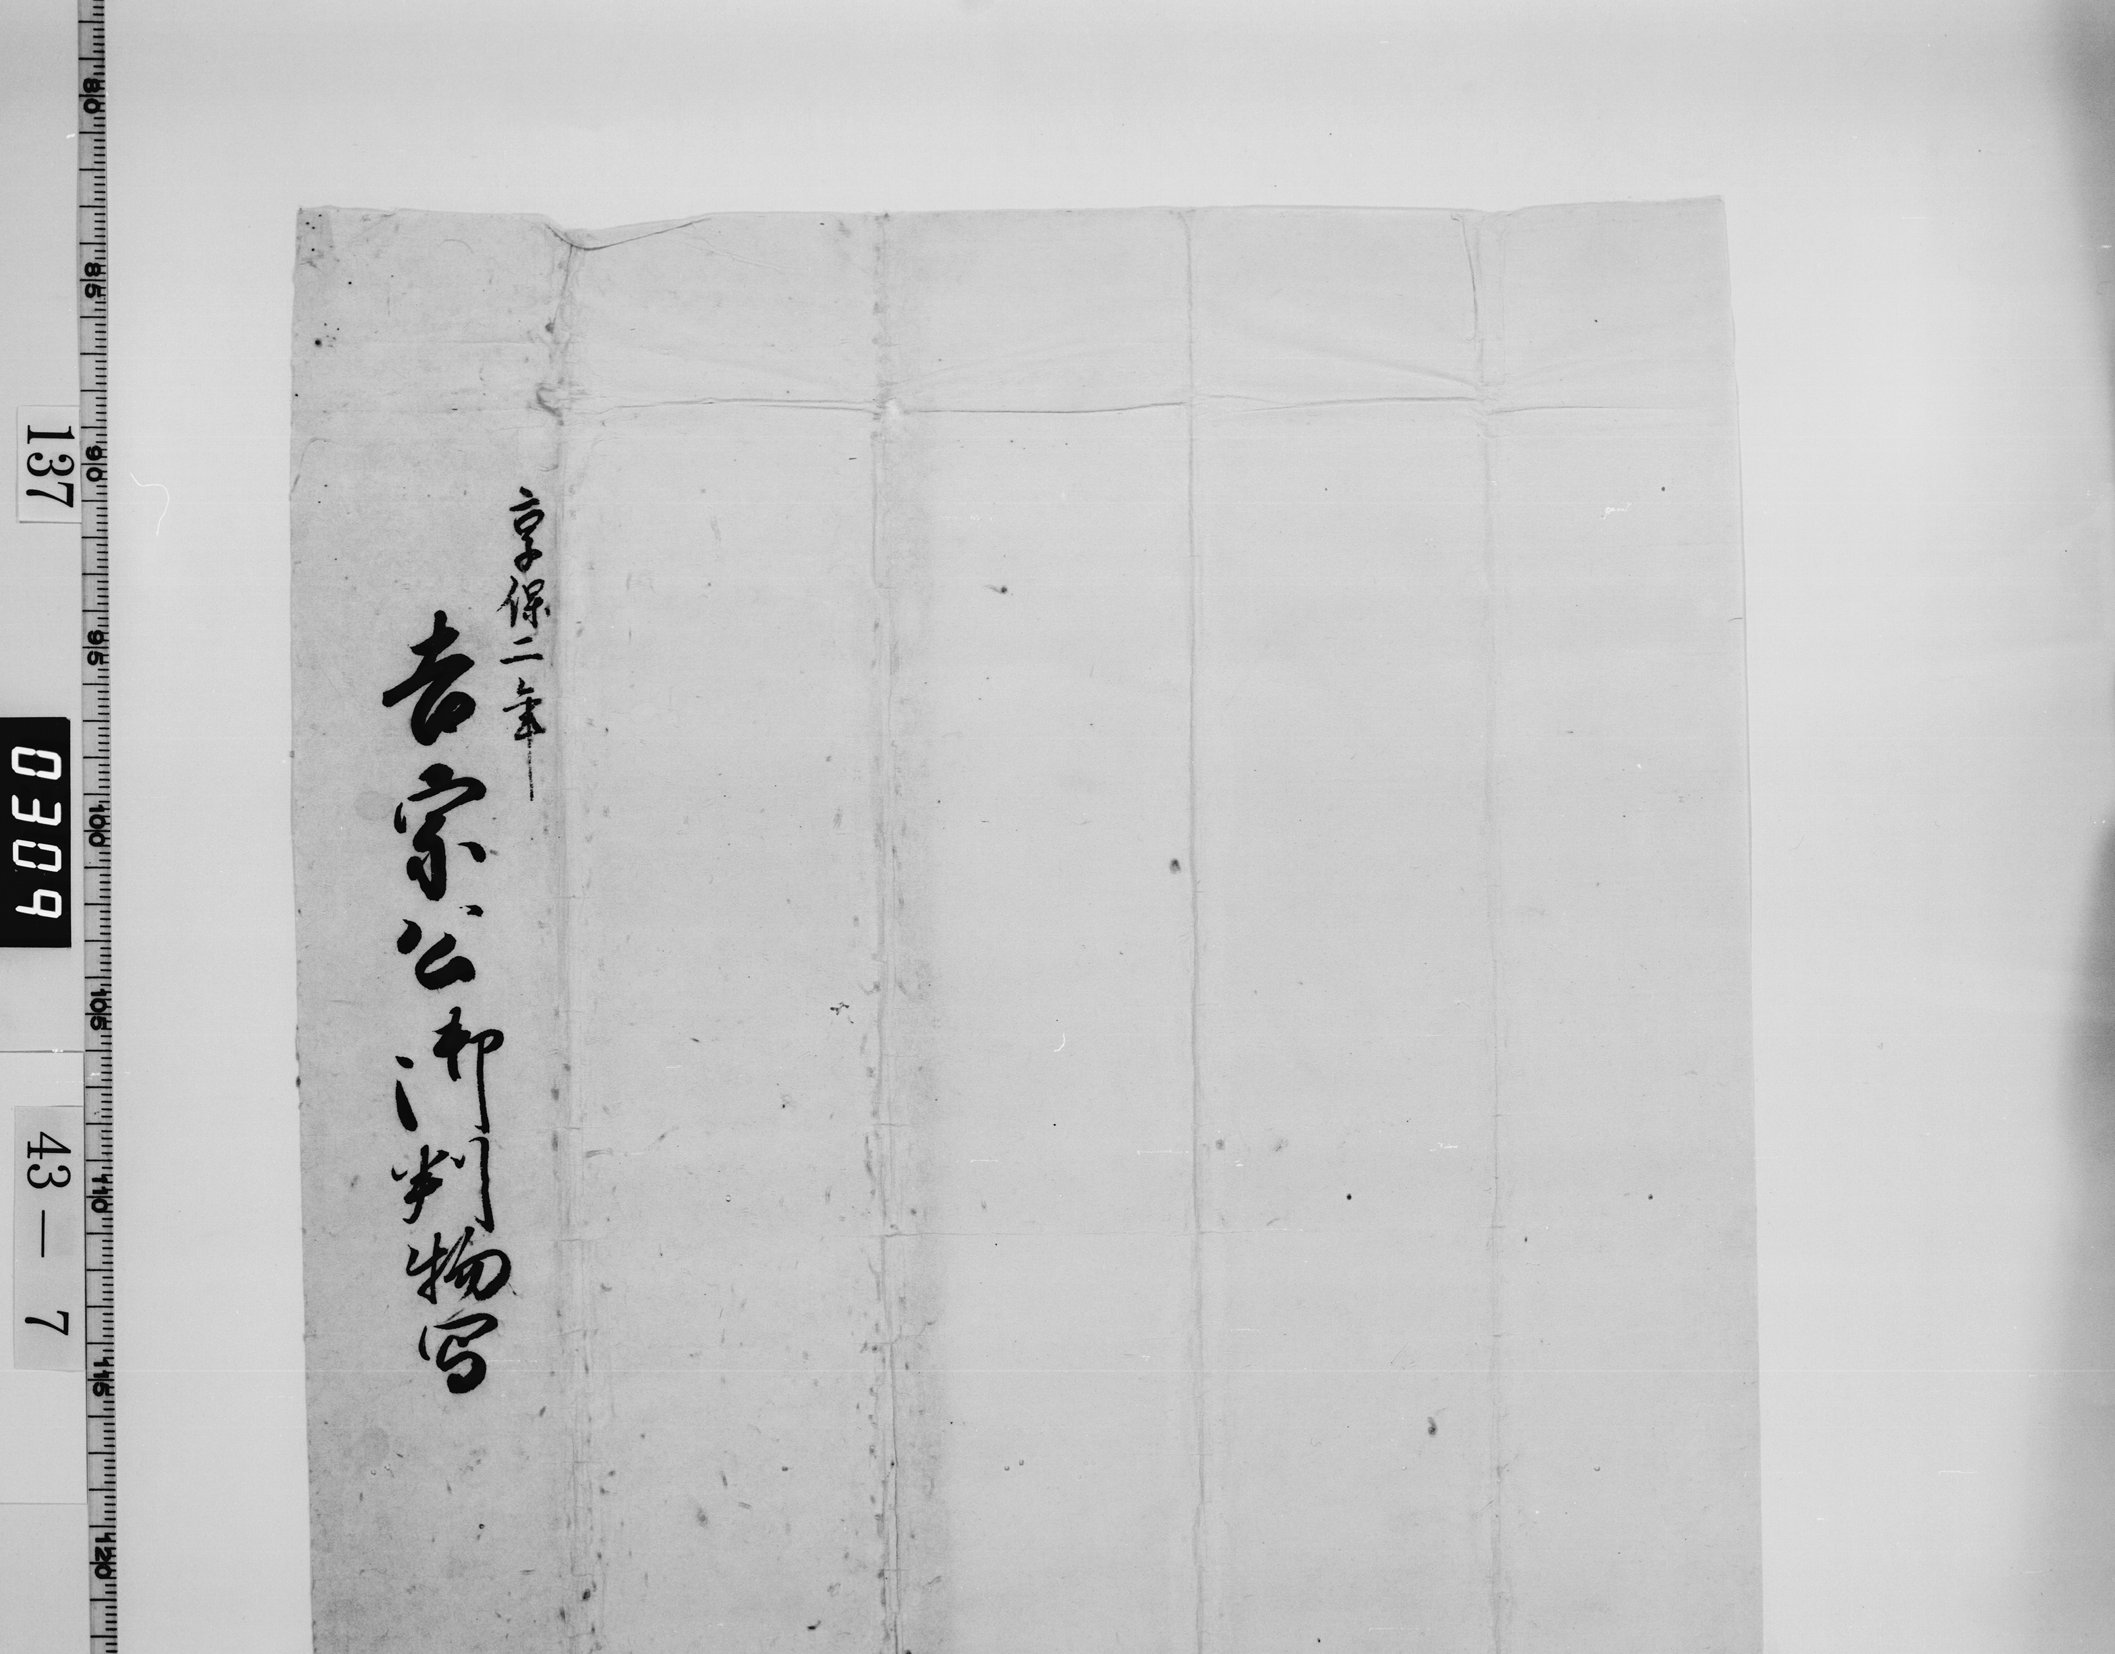 享保二年
吉宗公御判物写
137
0309
43-7
80
85
90
95
100
105
110
115
120